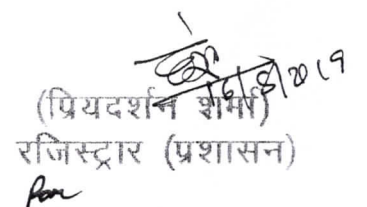 16/8/2019
(प्रियदर्शन शर्मा)
रजिस्ट्रार (प्रशासन)